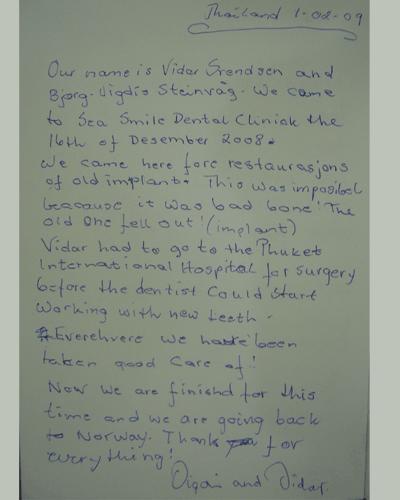 Thailand 1-02-09
Our name is Vidar Svendsen and
Bjørg-Vigdis Steinvåg. We came
to Sea Smile Dental Cliniak the
16th of Desember 2008.
We came here fore restaurasjons
of old implant. This was imposibel
beacause it was bad bone! The
old one fell out! (implant)
Vidar had to go to the Phuket
International Hospital for surgery
before the dentist could start
working with new teeth.
Everehvere we have been
taken good care of!
Now we are finishd for this
time and we are going back
to Norway. Thank you for
everything!
Vigdis and Vidar